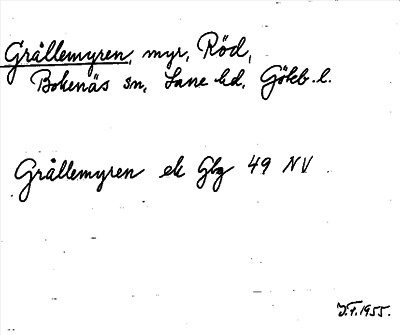 Grållemyren, myr, Röd,
Bokenäs sn, Lane hd, Göteb. l.
Grållemyren ek Gbg 49 NV
J.F. 1955.